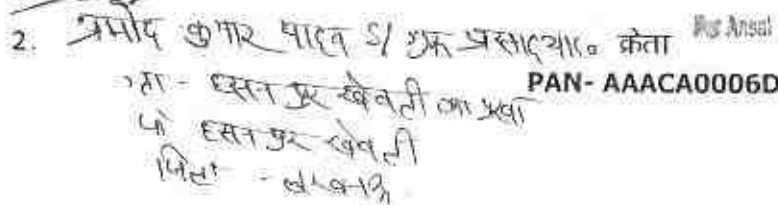 2. प्रमोद कुमार यादव S/ गुरु प्रसाद या० क्रेता
PAN- AAACA0006D
- हसनपुर खेवली का पुरवा
पो हसनपुर खेवली
जिला - लखनऊ